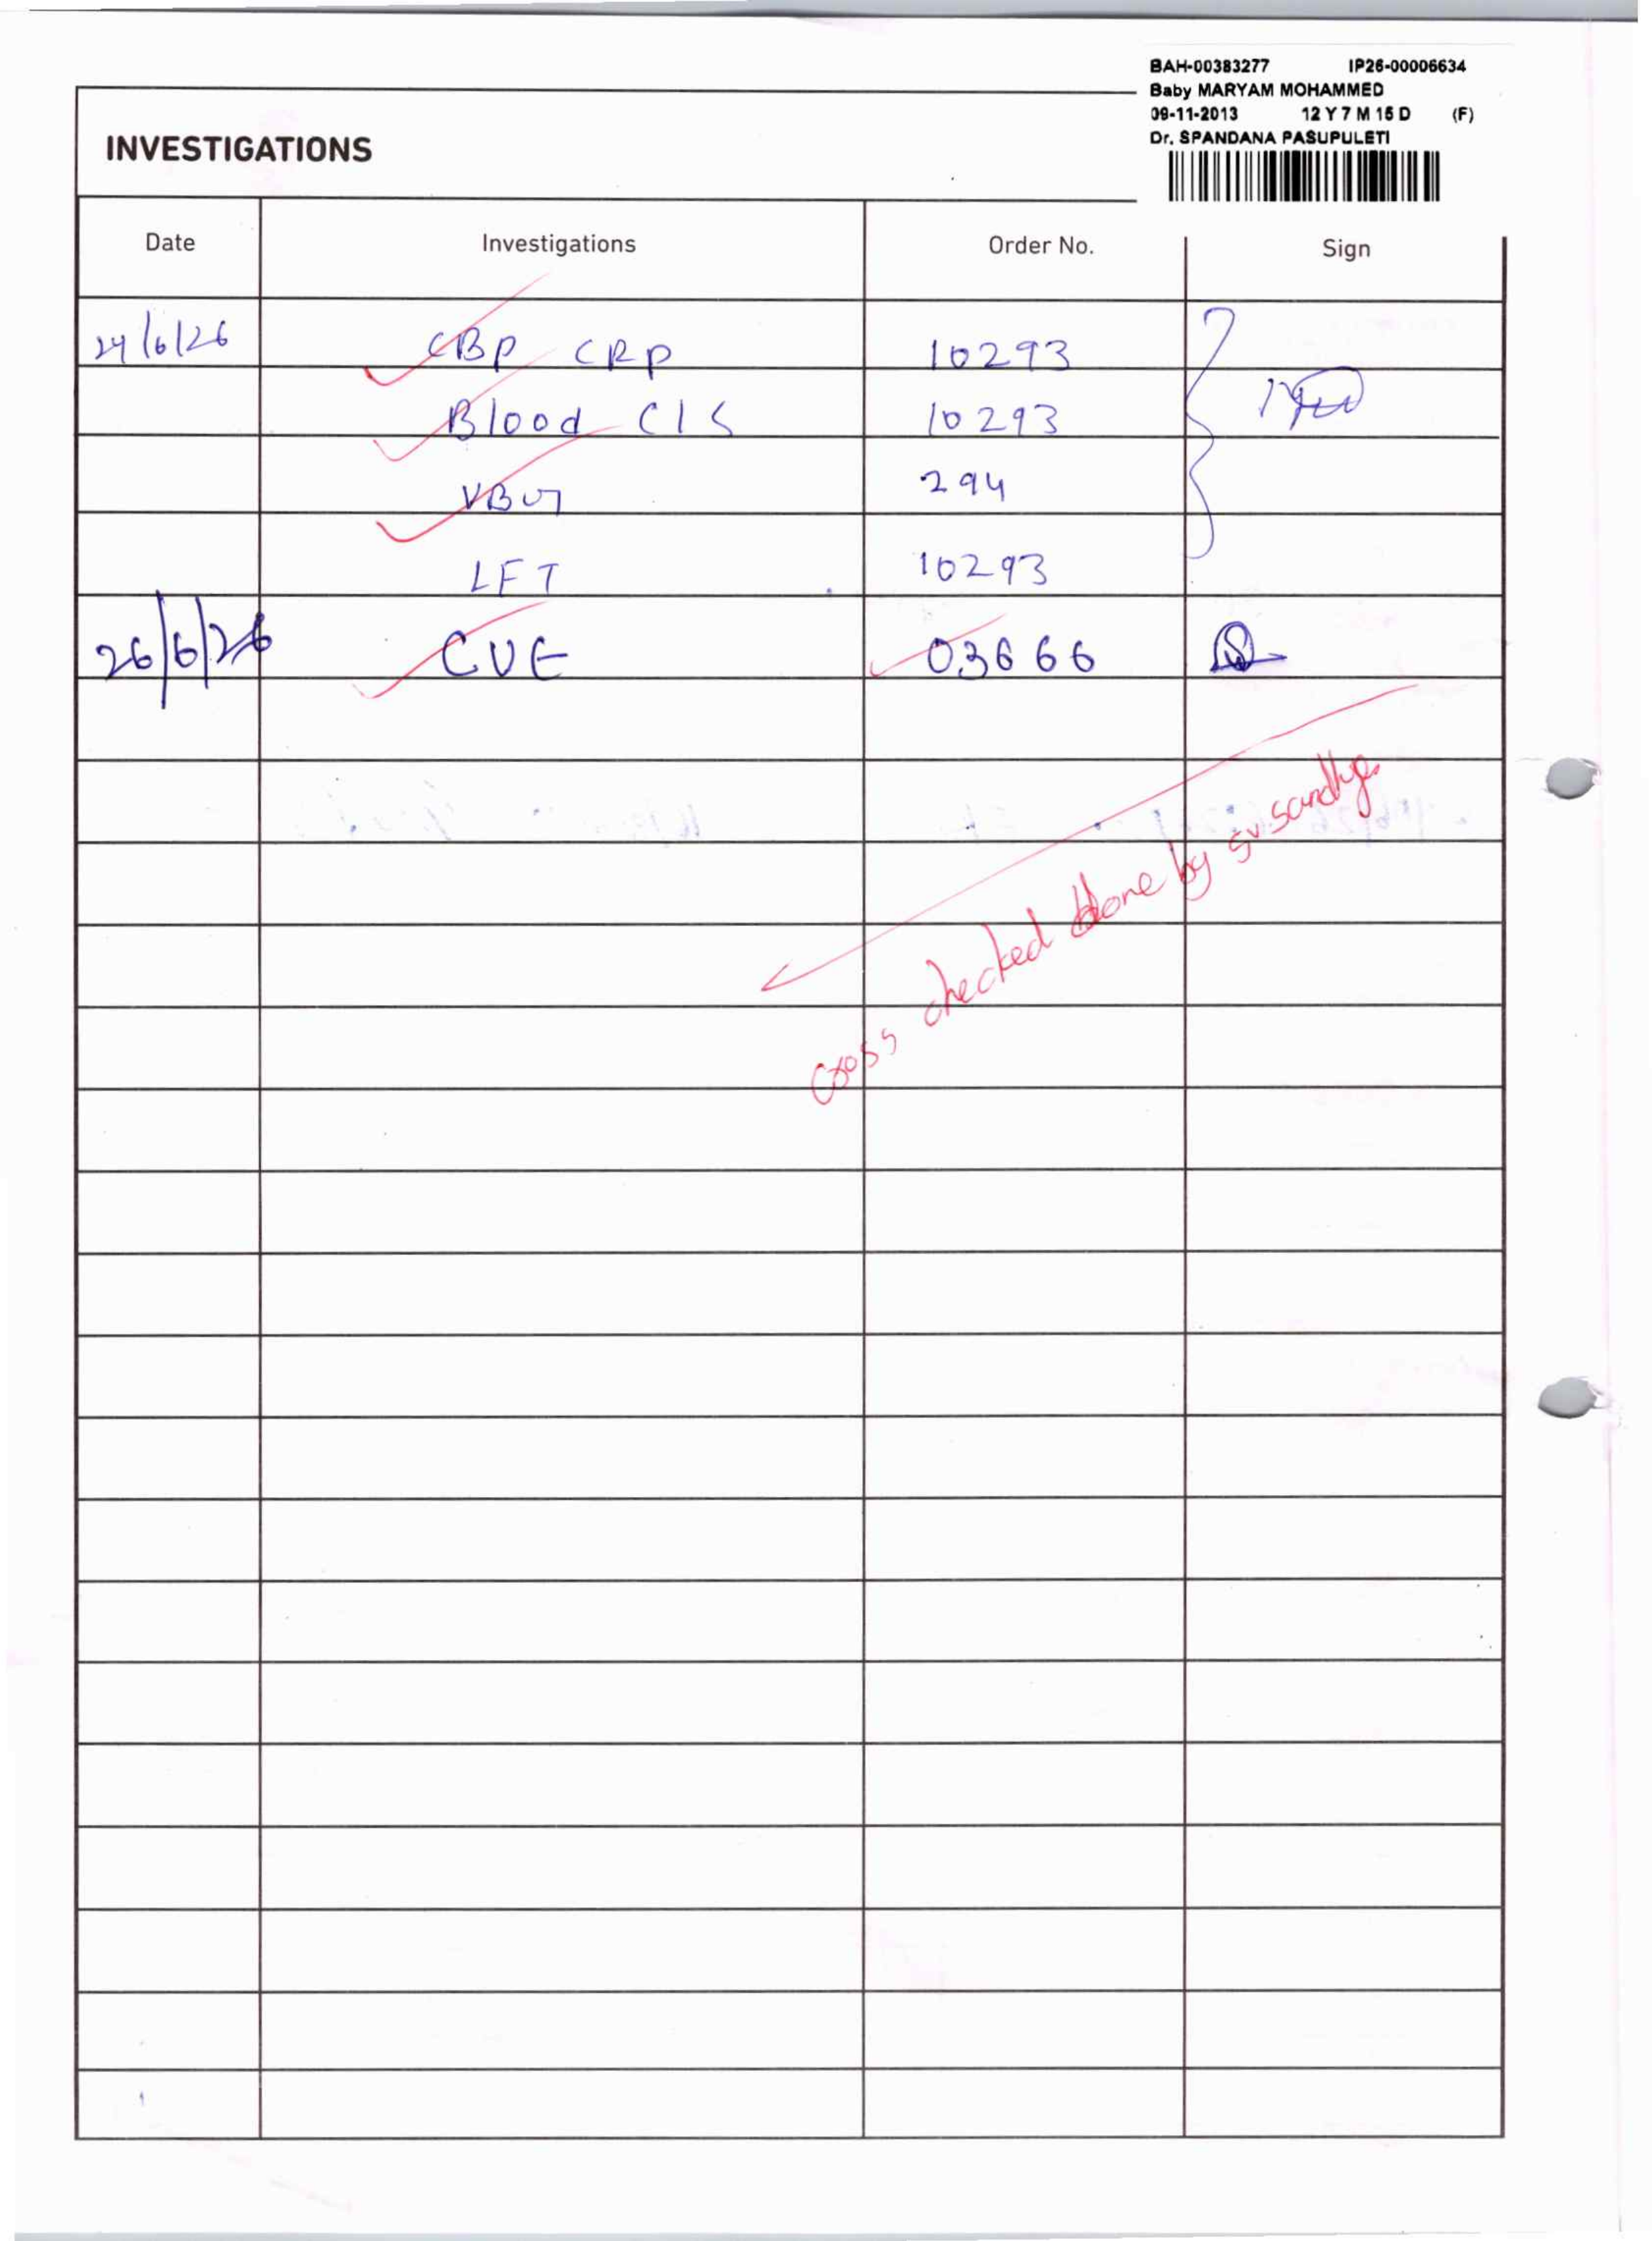 BAH-00383277 IP26-00006634
Baby MARYAM MOHAMMED
09-11-2013 12 Y 7 M 15 D (F)
Dr. SPANDANA PASUPULETI
INVESTIGATIONS
Date Investigations Order No. Sign
24/6/26 CBP CRP 10293
Blood C/S 10293
VBG 294
LFT 10293
26/6/26 CUE 03666
cross checked done by